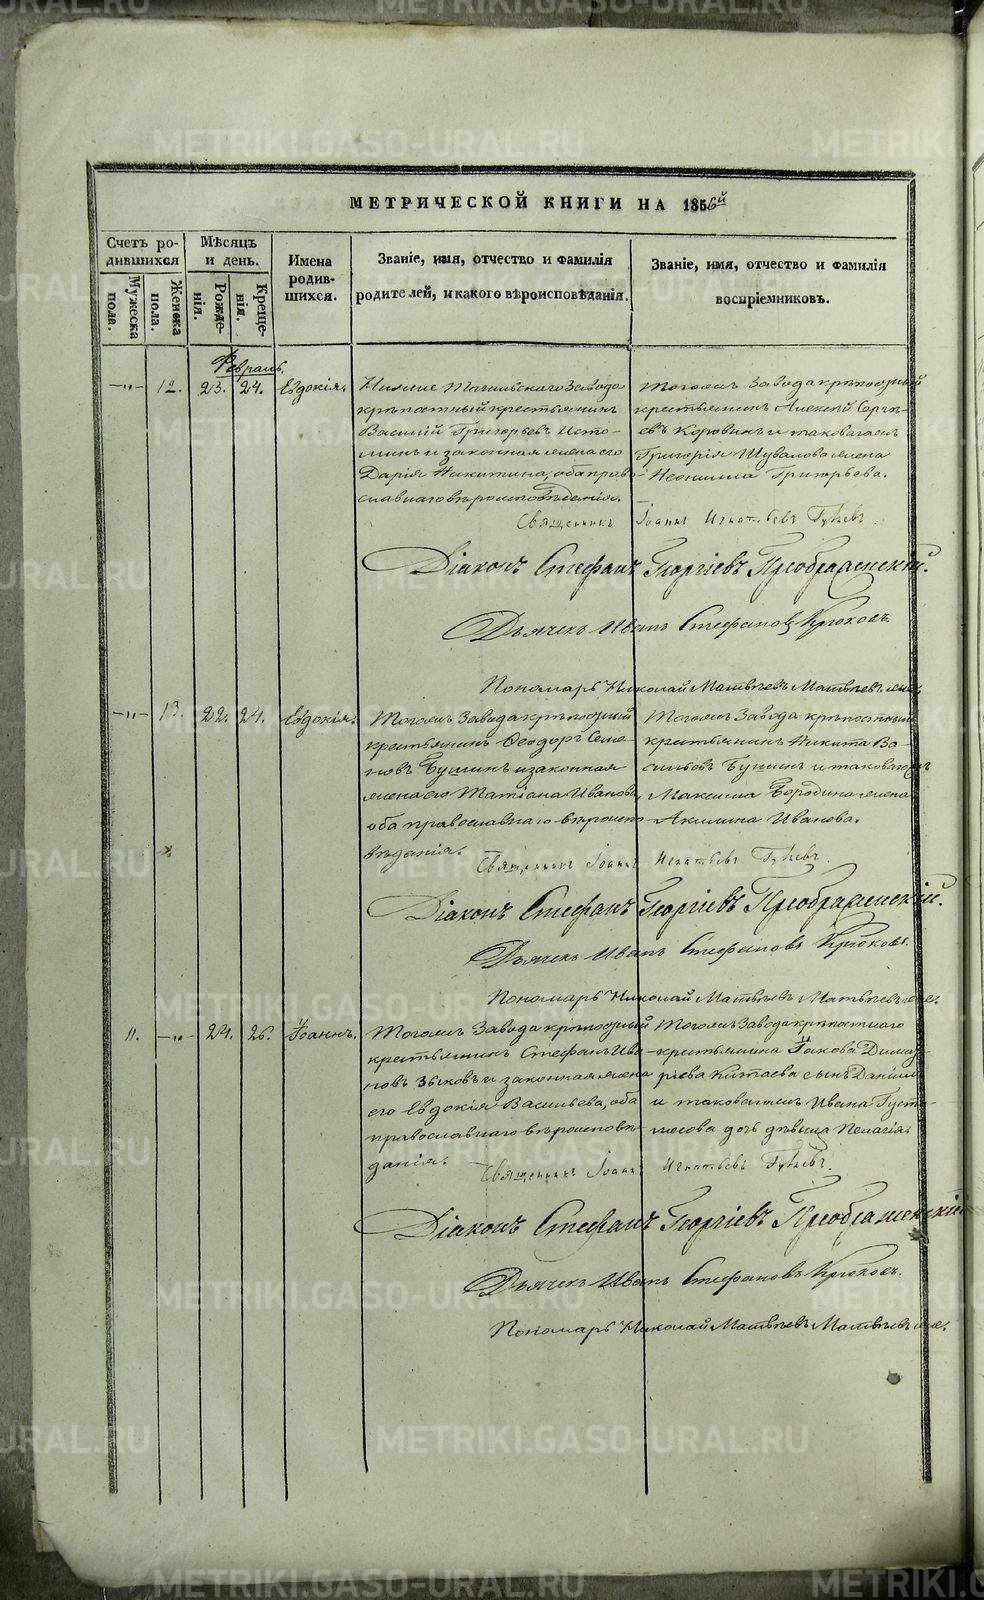 МЕТРИЧЕСКОЙ КНИГИ НА 1856й
Счетъ ро-
дившихся
Мужеска
пола.
Женска
пола.
Мѣсяцъ
и день.
Рожде-
нія.
Креще-
нія.
Имена
родив-
шихся.
Званіе, имя, отчество и фамилія
родителей, и какого вѣроисповѣданія.
Званіе, имя, отчество и фамилія
воспріемниковъ.
Февраль.
—"— 12. 23. 24. Евдокія.
Нижне Тагильскаго Завода
крѣпостный крестьянинъ
Василій Григорьевъ Исто-
минъ и законная жена его
Дарія Никитина, оба право
славнаго вѣроисповѣданія.
Тогожъ Завода крѣпостный
крестьянинъ Алексѣй Сергѣ-
евъ Коровинъ и таковагожъ
Григорія Шувалова жена
Неонилла Григорьева.
Священникъ Іоаннъ Игнатьевъ
Діаконъ Стефанъ Георгіевъ Преображенскій.
Дьячекъ Иванъ Стефановъ Крюковъ
Пономарь Николай Матвѣевъ Матвѣевъ же.
—"— 13. 22. 24. Евдокія.
Тогожъ Завода крѣпостный
крестьянинъ Ѳеодоръ Семе-
новъ Бушинъ и законная
жена его Татіана Иванова,
оба православнаго вѣроиспо-
вѣданія.
Тогожъ Завода крѣпостный
крестьянинъ Никита Ва-
сильевъ Бушинъ и таковагожъ
Максима Бородина жена
Акилина Иванова.
Священникъ Іоаннъ Игнатьевъ
Діаконъ Стефанъ Георгіевъ Преображенскій.
Дьячекъ Иванъ Стефановъ Крюковъ.
Пономарь Николай Матвѣевъ Матвѣевъ же.
11. —"— 24. 26. Іоаннъ.
Тогожъ Завода крѣпостный
крестьянинъ Стефанъ Ива-
новъ Зыковъ и законная жена
его Евдокія Васильева, оба
православнаго вѣроисповѣ-
данія.
Тогожъ Завода крѣпостнаго
крестьянина Іакова Димит-
ріева Китаева сынъ Даніилъ
и таковагожъ Ивана Густо-
месова дочь дѣвица Пелагія.
Священникъ Іоаннъ Игнатьевъ
Діаконъ Стефанъ Георгіевъ Преображенскій
Дьячекъ Иванъ Стефановъ Крюковъ.
Пономарь Николай Матвѣевъ Матвѣевъ же.
METRIKI.GASO-URAL.RU